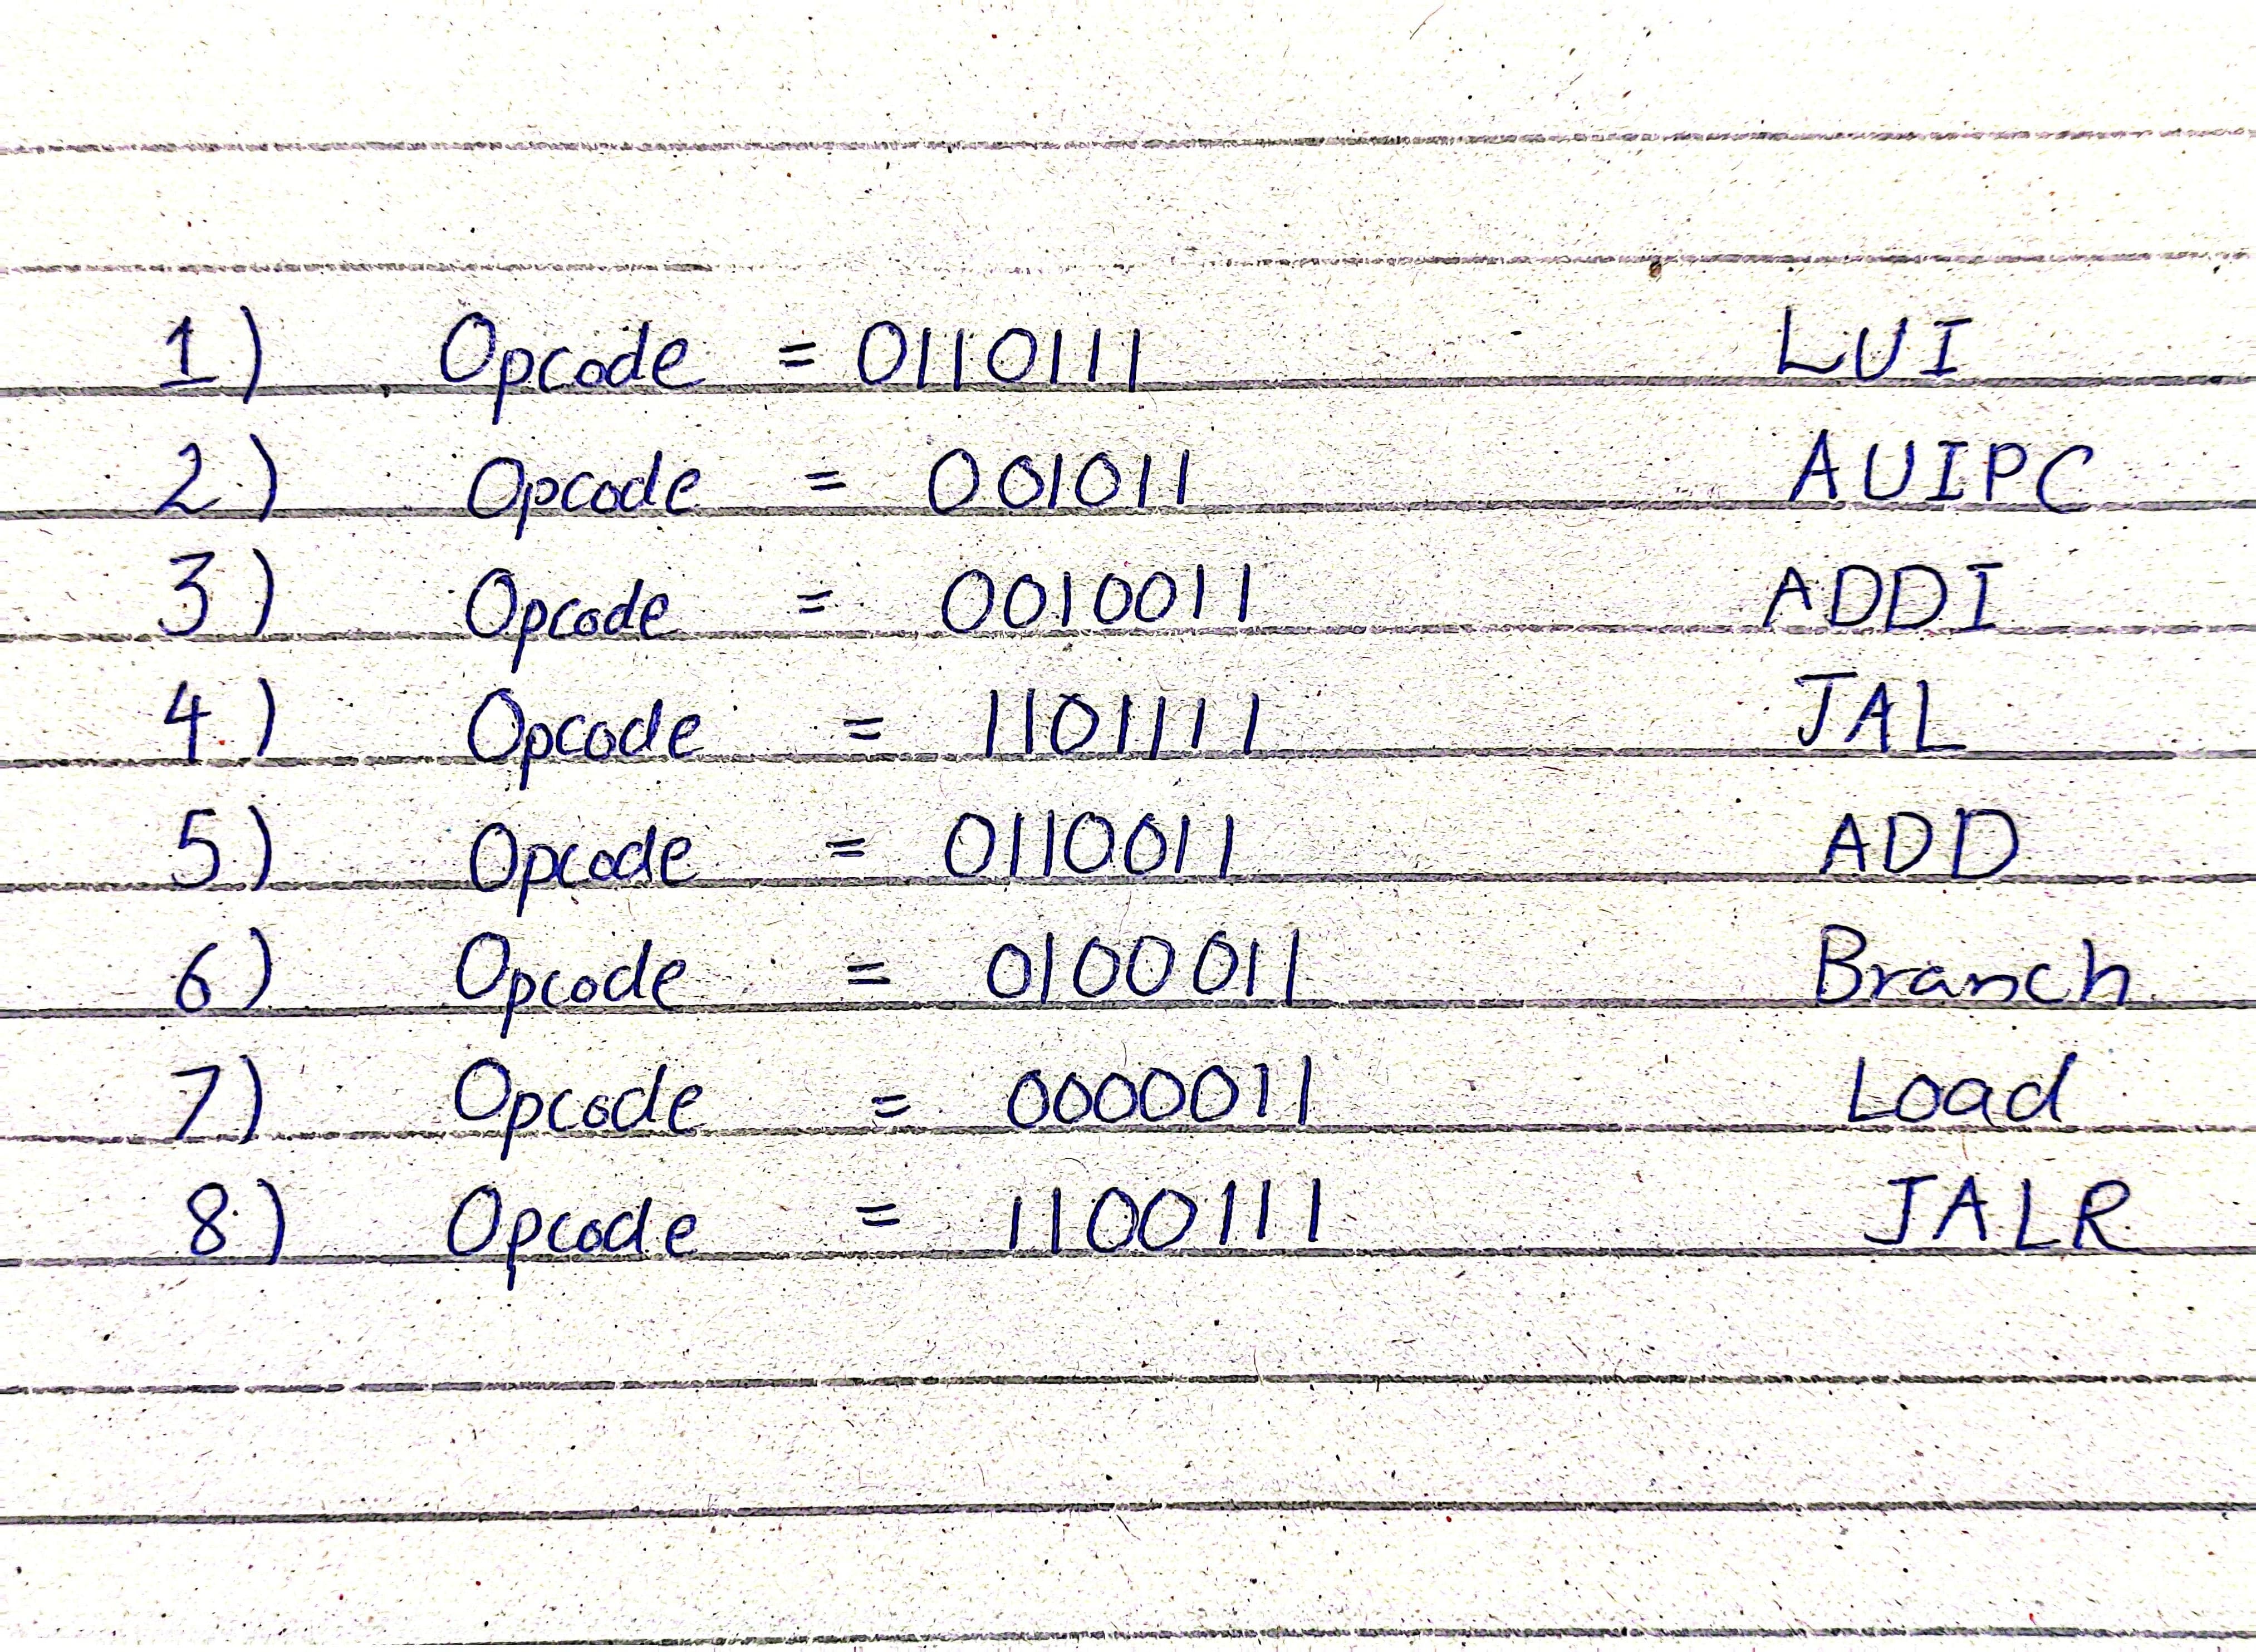 1) Opcode = 0110111 LUI
2) Opcode = 001011 AUIPC
3) Opcode = 0010011 ADDI
4) Opcode = 1101111 JAL
5) Opcode = 0110011 ADD
6) Opcode = 0100011 Branch
7) Opcode = 0000011 Load
8) Opcode = 1100111 JALR